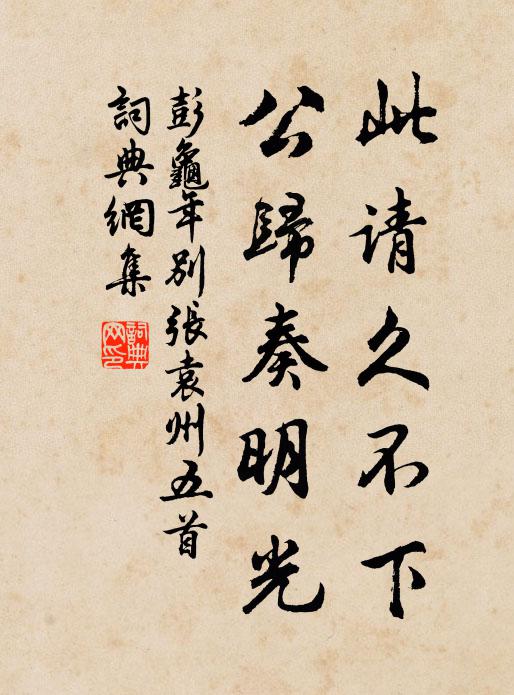 此请久不下
公歸奏明光
彭龜年别張袁州五首
詞典網集
詞典網印